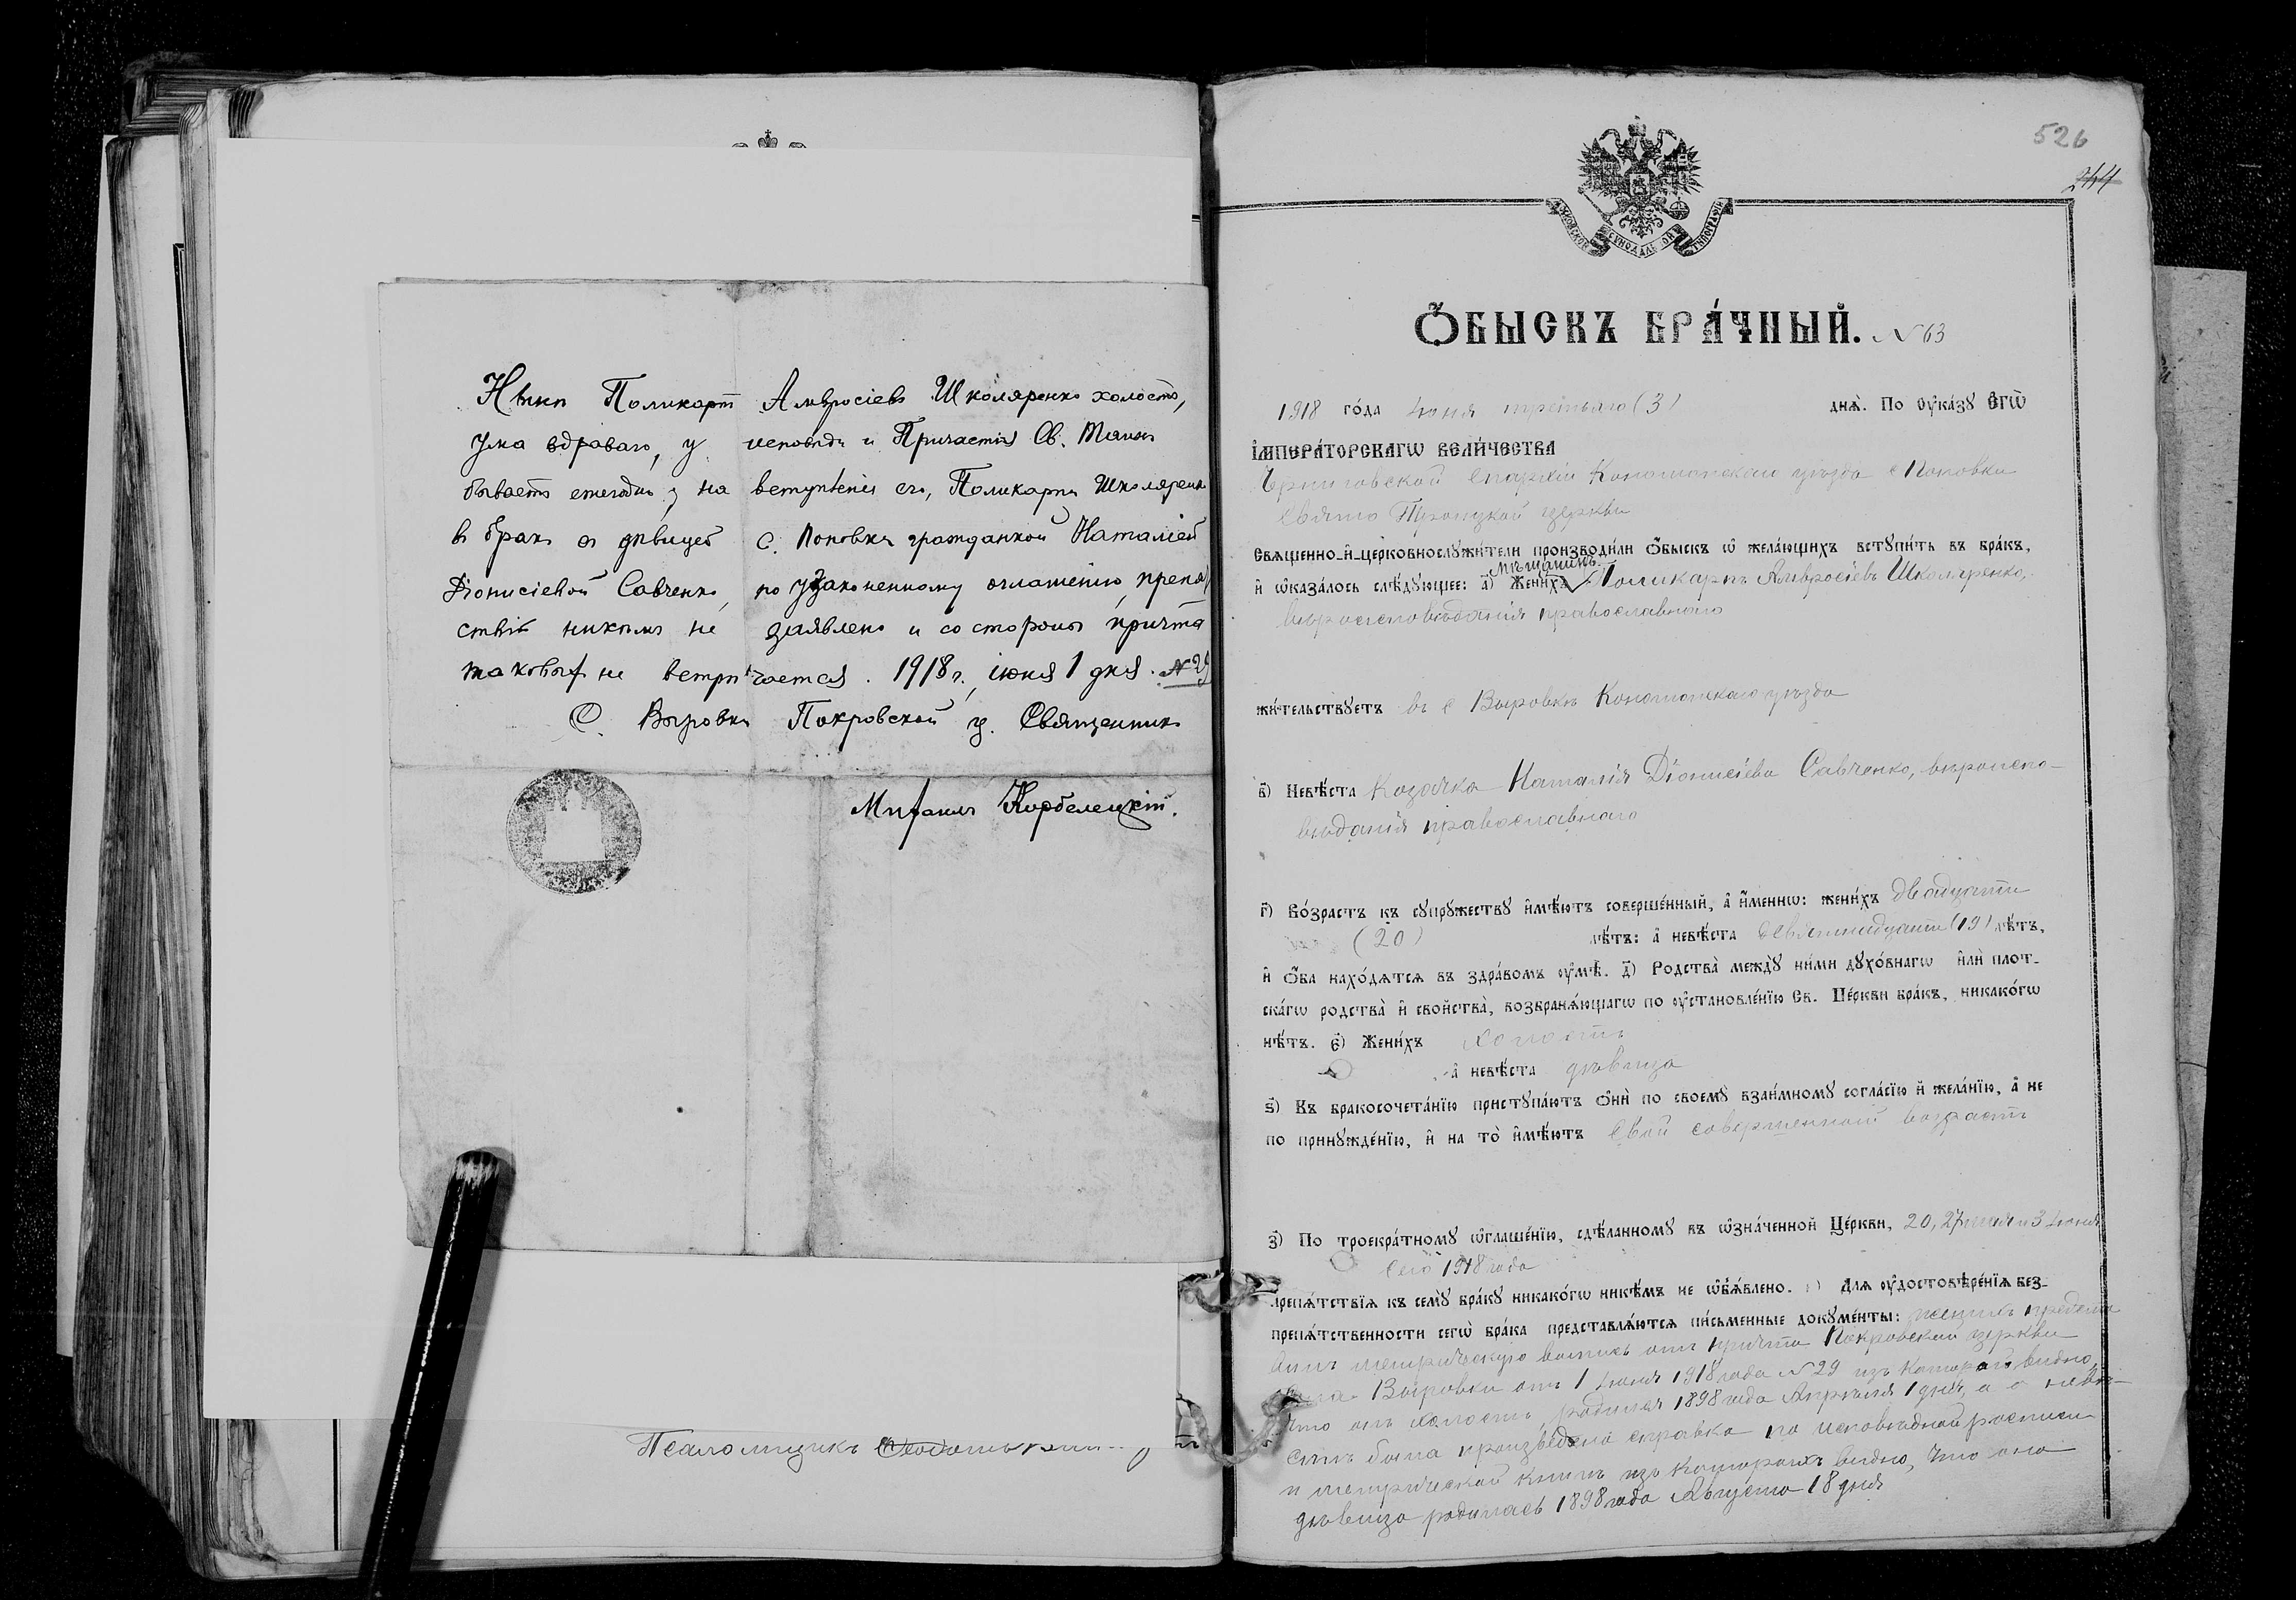 Нынѣ Поликарпъ Амвросіевъ Школяренко холостъ,
ума здраваго, у исповѣди и Причастія Св. Таинъ
бываетъ ежегодно; на вступленіе его, Поликарпа Школяренка
въ бракъ съ дѣвицей с. Поповки гражданкой Наталіей
Діонисіевой Савченко, по узаконенному оглашенію, препят
ствій никѣмъ не заявлено и со стороны причта
таковыхъ не встрѣчается. 1918 г., іюня 1 дня. №29
С. Выровки Покровской ц. Священникъ
Михаилъ Корбелецкій.
Псаломщикъ
526
244
МОСКОВСКОЙ СѴНОДАЛЬНОЙ ТИПОГРАФІИ
Ѻ҆БЫСКЪ БРА́ЧНЫЙ. №63
1918 го́да Іюня третьяго (3) днѧ̀. По ᲂу҆ка́зꙋ Є҆гѡ̀
І҆мпера́торскагѡ вели́чества
Черниговской Епархіи Конотопскаго уѣзда с Поповки
Свято Троицкой церкви
Свѧщенно-и҆-церковнослꙋжи́тели производи́ли ѻ҆́быскъ ѡ҆ жела́ющихъ встꙋпи́ть въ бра́къ,
и҆ ѡ҆каза́лось слѣ́дꙋющее: а҃) Жени́хъ мѣщанинъ Поликарпъ Амвросіевъ Школяренко,
вѣроисповѣданія православнаго
жи́тельствꙋетъ въ с Выровкѣ Конотопскаго уѣзда
в҃) Невѣ́ста Козачка Наталія Діонисіева Савченко, вѣроиспо-
вѣданія православнаго
г҃) Во́зрастъ къ сꙋпрꙋ́жествꙋ и҆мѣ́ютъ соверше́нный, а҆ и҆́меннѡ: жени́хъ двадцати
(20) лѣ́тъ: а҆ невѣ́ста девятнадцати (19) лѣ́тъ,
и҆ ѻ҆́ба нахо́дѧтсѧ въ здра́вомъ ᲂу҆мѣ̀. д҃) Родства̀ междꙋ̀ ни́ми дꙋхо́внагѡ и҆лѝ плот-
ска́гѡ родства̀ и҆ свойства̀, возбранѧ́ющагѡ по ᲂу҆становле́нїю Св. Це́ркви бра́къ, никако́гѡ
нѣ́тъ. є҃) Жени́хъ холостъ
а҆ невѣ́ста дѣвица
ѕ҃) Къ бракосочета́нїю пристꙋпа́ютъ ѻ҆нѝ по своемꙋ̀ взаи́мномꙋ согла́сїю и҆ жела́нїю, а҆ не
по принꙋжде́нїю, и҆ на то̀ и҆мѣ́ютъ свой совершенной возрастъ
з҃) По троекра́тномꙋ ѡ҆глаше́нїю, сдѣ́ланномꙋ въ ѡ҆зна́ченной Це́ркви, 20, 27 мая и 3 Іюня
сего 1918 года
препѧ́тствїѧ къ семꙋ̀ бра́кꙋ никако́гѡ никѣ́мъ не ѡ҆б̾ѧ́влено. и҃) Длѧ ᲂу҆достовѣре́нїѧ без-
препѧ́тственности сегѡ̀ бра́ка представлѧ́ютсѧ пи́сьменные докꙋме́нты: женихъ предста
вилъ метрическую выпись отъ причта Покровской церкви
села Выровки отъ 1 Іюня 1918 года №29 изъ которой видно,
что онъ холостъ, родился 1898 года Апрѣля 1 дня, а о невѣ-
стѣ была произведена справка по исповѣдной росписи
и метрической книгѣ изъ которыхъ видно, что она
дѣвица родилась 1898 года Августа 18 дня